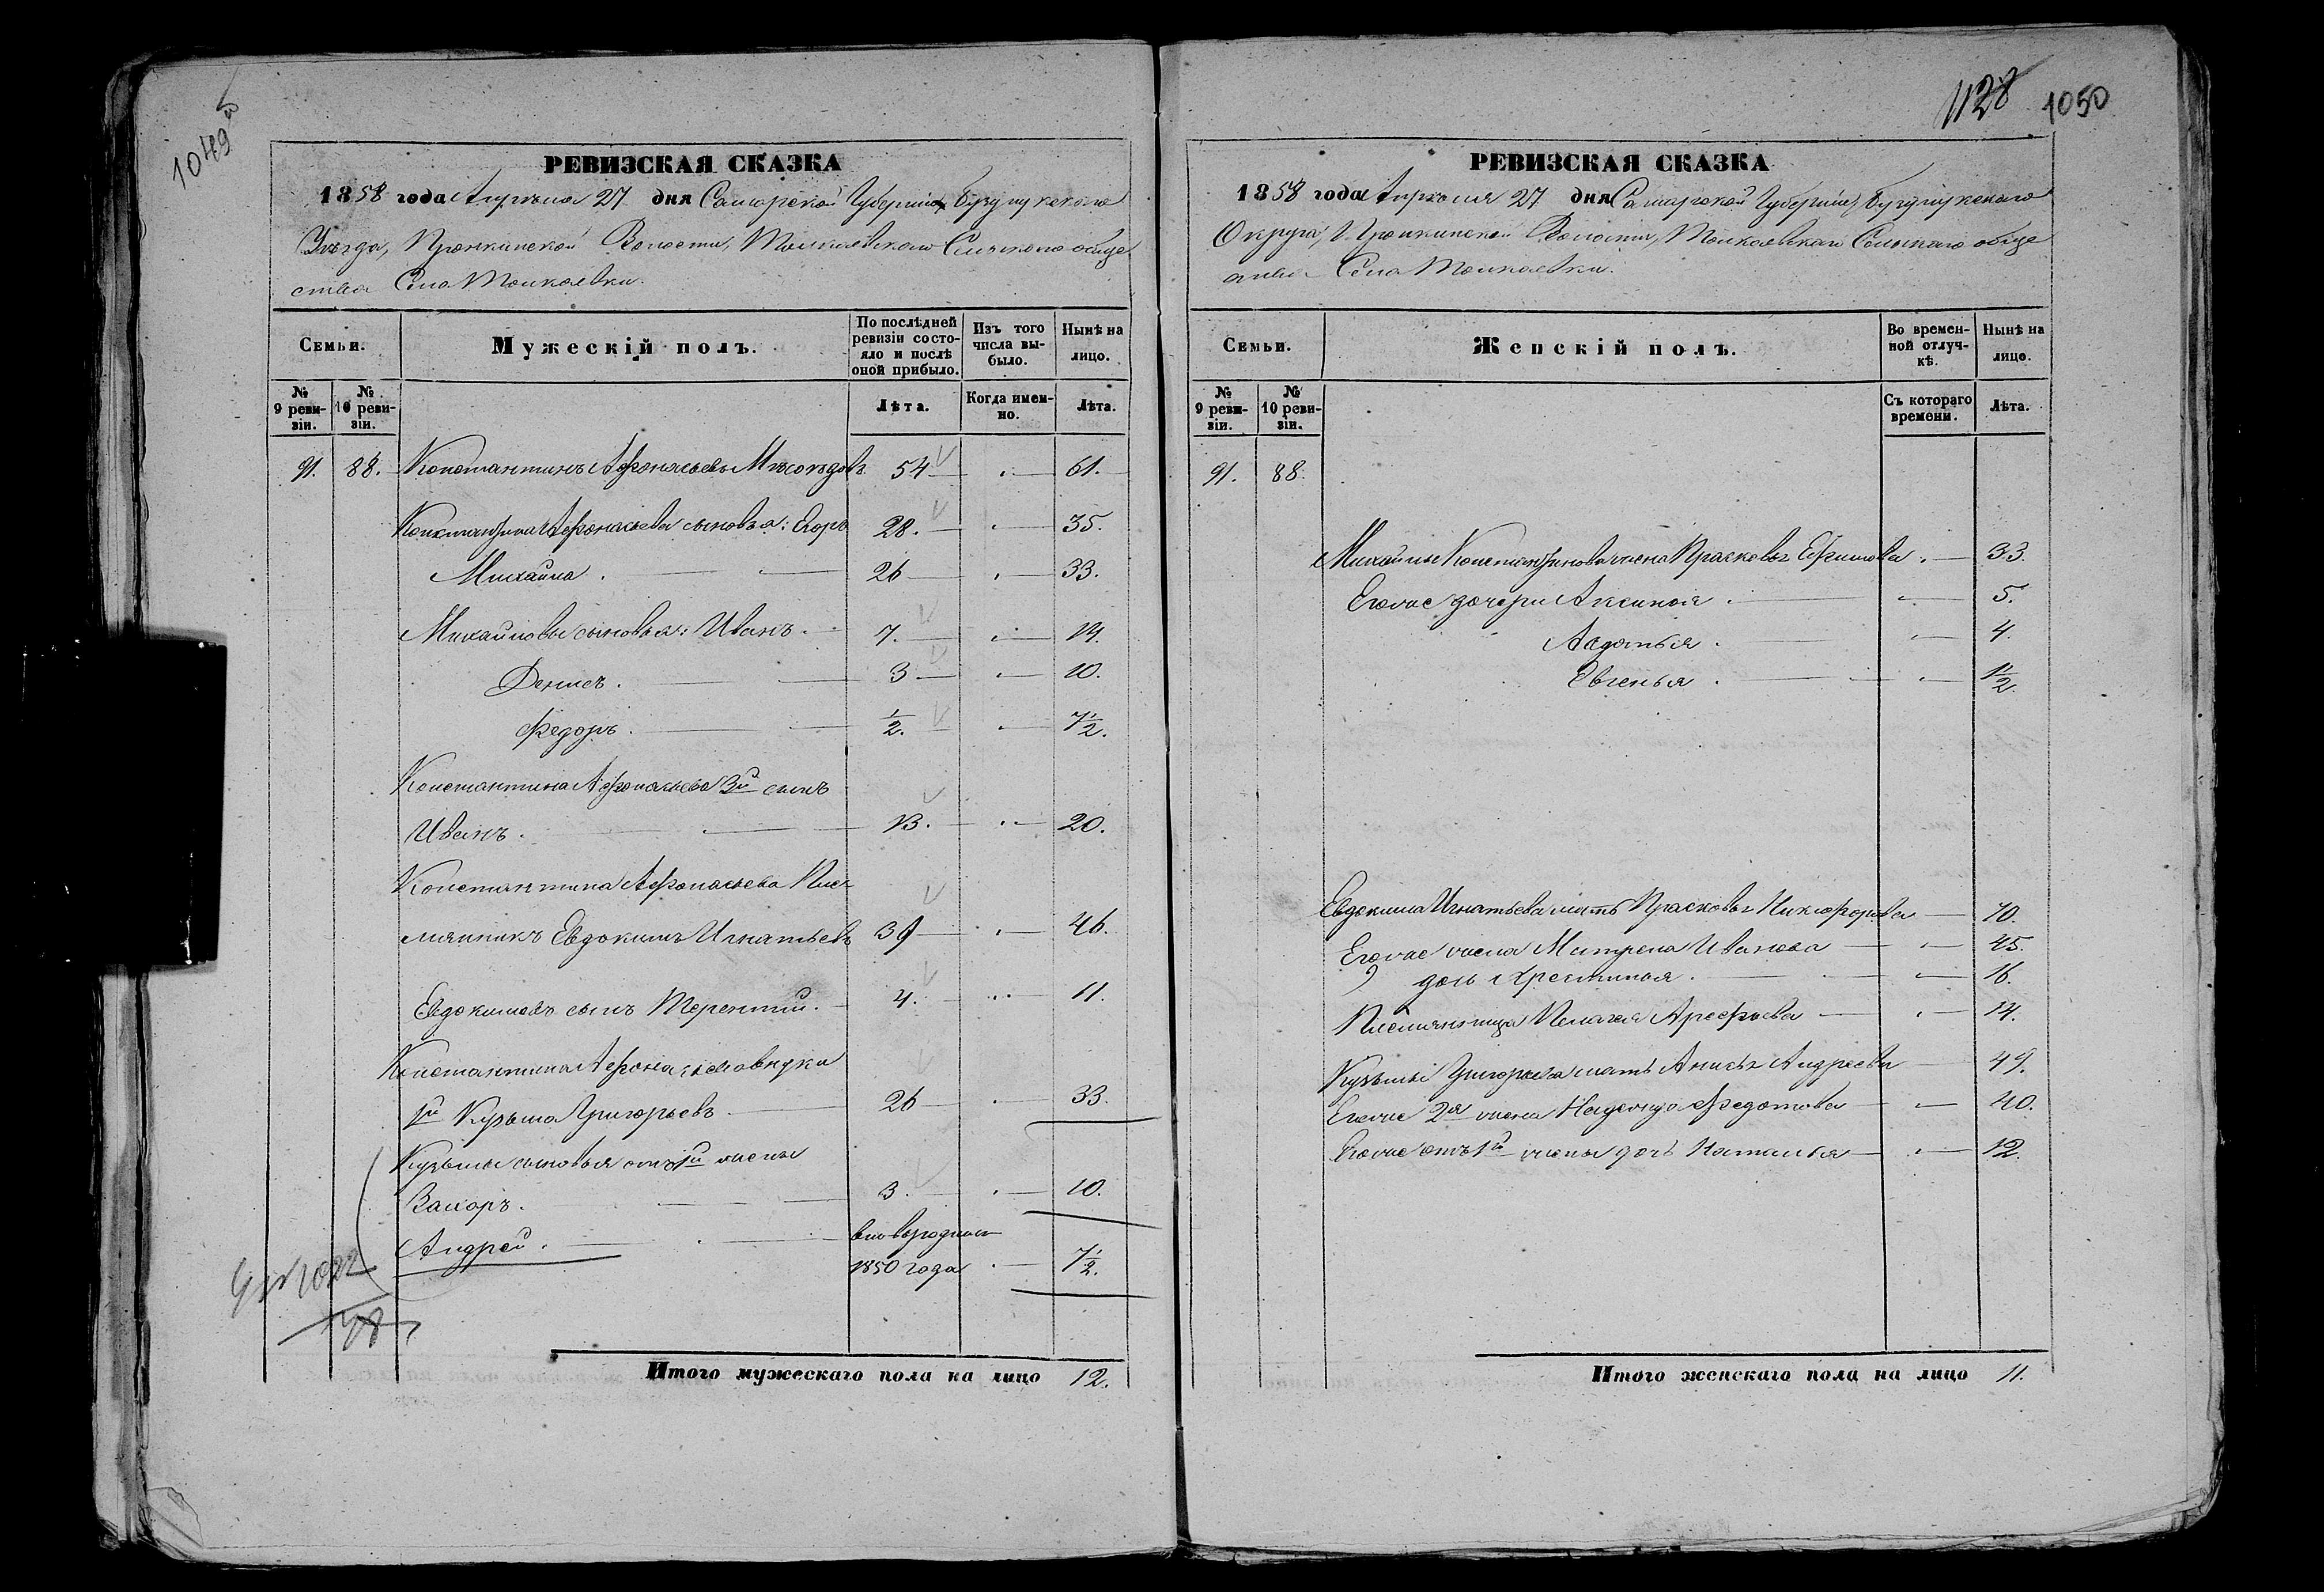 1049 об
РЕВИЗСКАЯ СКАЗКА
1858 года Апреля 27 дня Самарской Губернiи, Бузулукского
Уезда, Пронькинской Волости, Толкаевского Сельского обще
ства Села Толкаевки.
Семьи.
Мужескій полъ.
По послѣдней ревизіи состояло и послѣ оной прибыло.
Изъ того числа выбыло.
Нынѣ на лицо.
№ 9 ревизіи.
№ 10 ревизіи.
Лѣта.
Когда именно.
Лѣта.
91. 88. Константинъ Афонасьевъ 54 61.
Константина Афонасьева сыновья: Егоръ 28. 35.
Михайла 26 33.
Михайловы сыновья: Иванъ. 7. 14.
Денисъ. 3 10.
Федоръ. 1/2. 7 1/2.
Константина Афонасьева 3й сынъ
Иванъ. 13. 20.
Константина Афонасьева Пле
мянникъ Евдокимъ Игнатьевъ 39 46.
Евдокимовъ сынъ Терентий. 4. 11.
Константина Афонасьева внуки
1й Кузьма Григорьевъ 26 33.
Кузьмы сыновья отъ 1й жены
3. 10.
Андрей. вновьрожден
1850 года 7 1/2.
Итого мужескаго пола на лицо 12.
1128 1050
РЕВИЗСКАЯ СКАЗКА
1858 года Апреля 27 дня Самарской Губернiи, Бузулукскаго
Округа, Пронькинской Волости, Толкаевскаго Сельскаго обще
ства Села Толкаевки.
Семьи.
Женскій полъ.
Во временной отлучкѣ.
Нынѣ на лице.
№ 9 ревизіи.
№ 10 ревизіи.
Съ котораго времени.
Лѣта.
91. 88.
Михайлы Константинова жена Прасковья Ефимова 33.
Егоже дочери Аксинья 5.
Авдотья. 4.
Евгенья 1 1/2.
Евдокима Игнатьева мать Прасковья Никифорова 70.
Егоже жена Матрена Иванова 45.
дочь Хрестинья. 16.
Племянница Пелагея Арефьева 14.
Кузьмы Григорьева мать Анисья Андреева 49.
Егоже 2я жена Надежда Федотова 40.
Егоже отъ 1й жены дочь Наталья 12.
Итого женскаго пола на лицо 11.